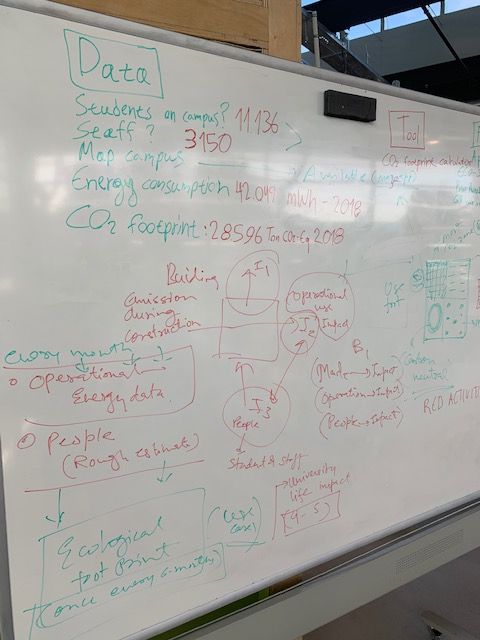 Data
Students on campus? 11.136
Staff? 3150
Map campus
Available
Energy consumption 42.049 mWh - 2018
CO2 footprint: 28596 Ton CO2-Eq 2018
Tool
CO2 footprint calculator
Building
emission
during
construction
I1
Operational
use
Impact
I2
I3
People
Student & staff
every month
Operational
Energy data.
People
(Rough estimate)
B1
(Mat → Impact)
(Operation → Impact)
(People → Impact)
Carbon
neutral
RED ACTIVIT
University
life impact
(9-5)
(use
case)
Ecological
foot print
(once every 6-months)